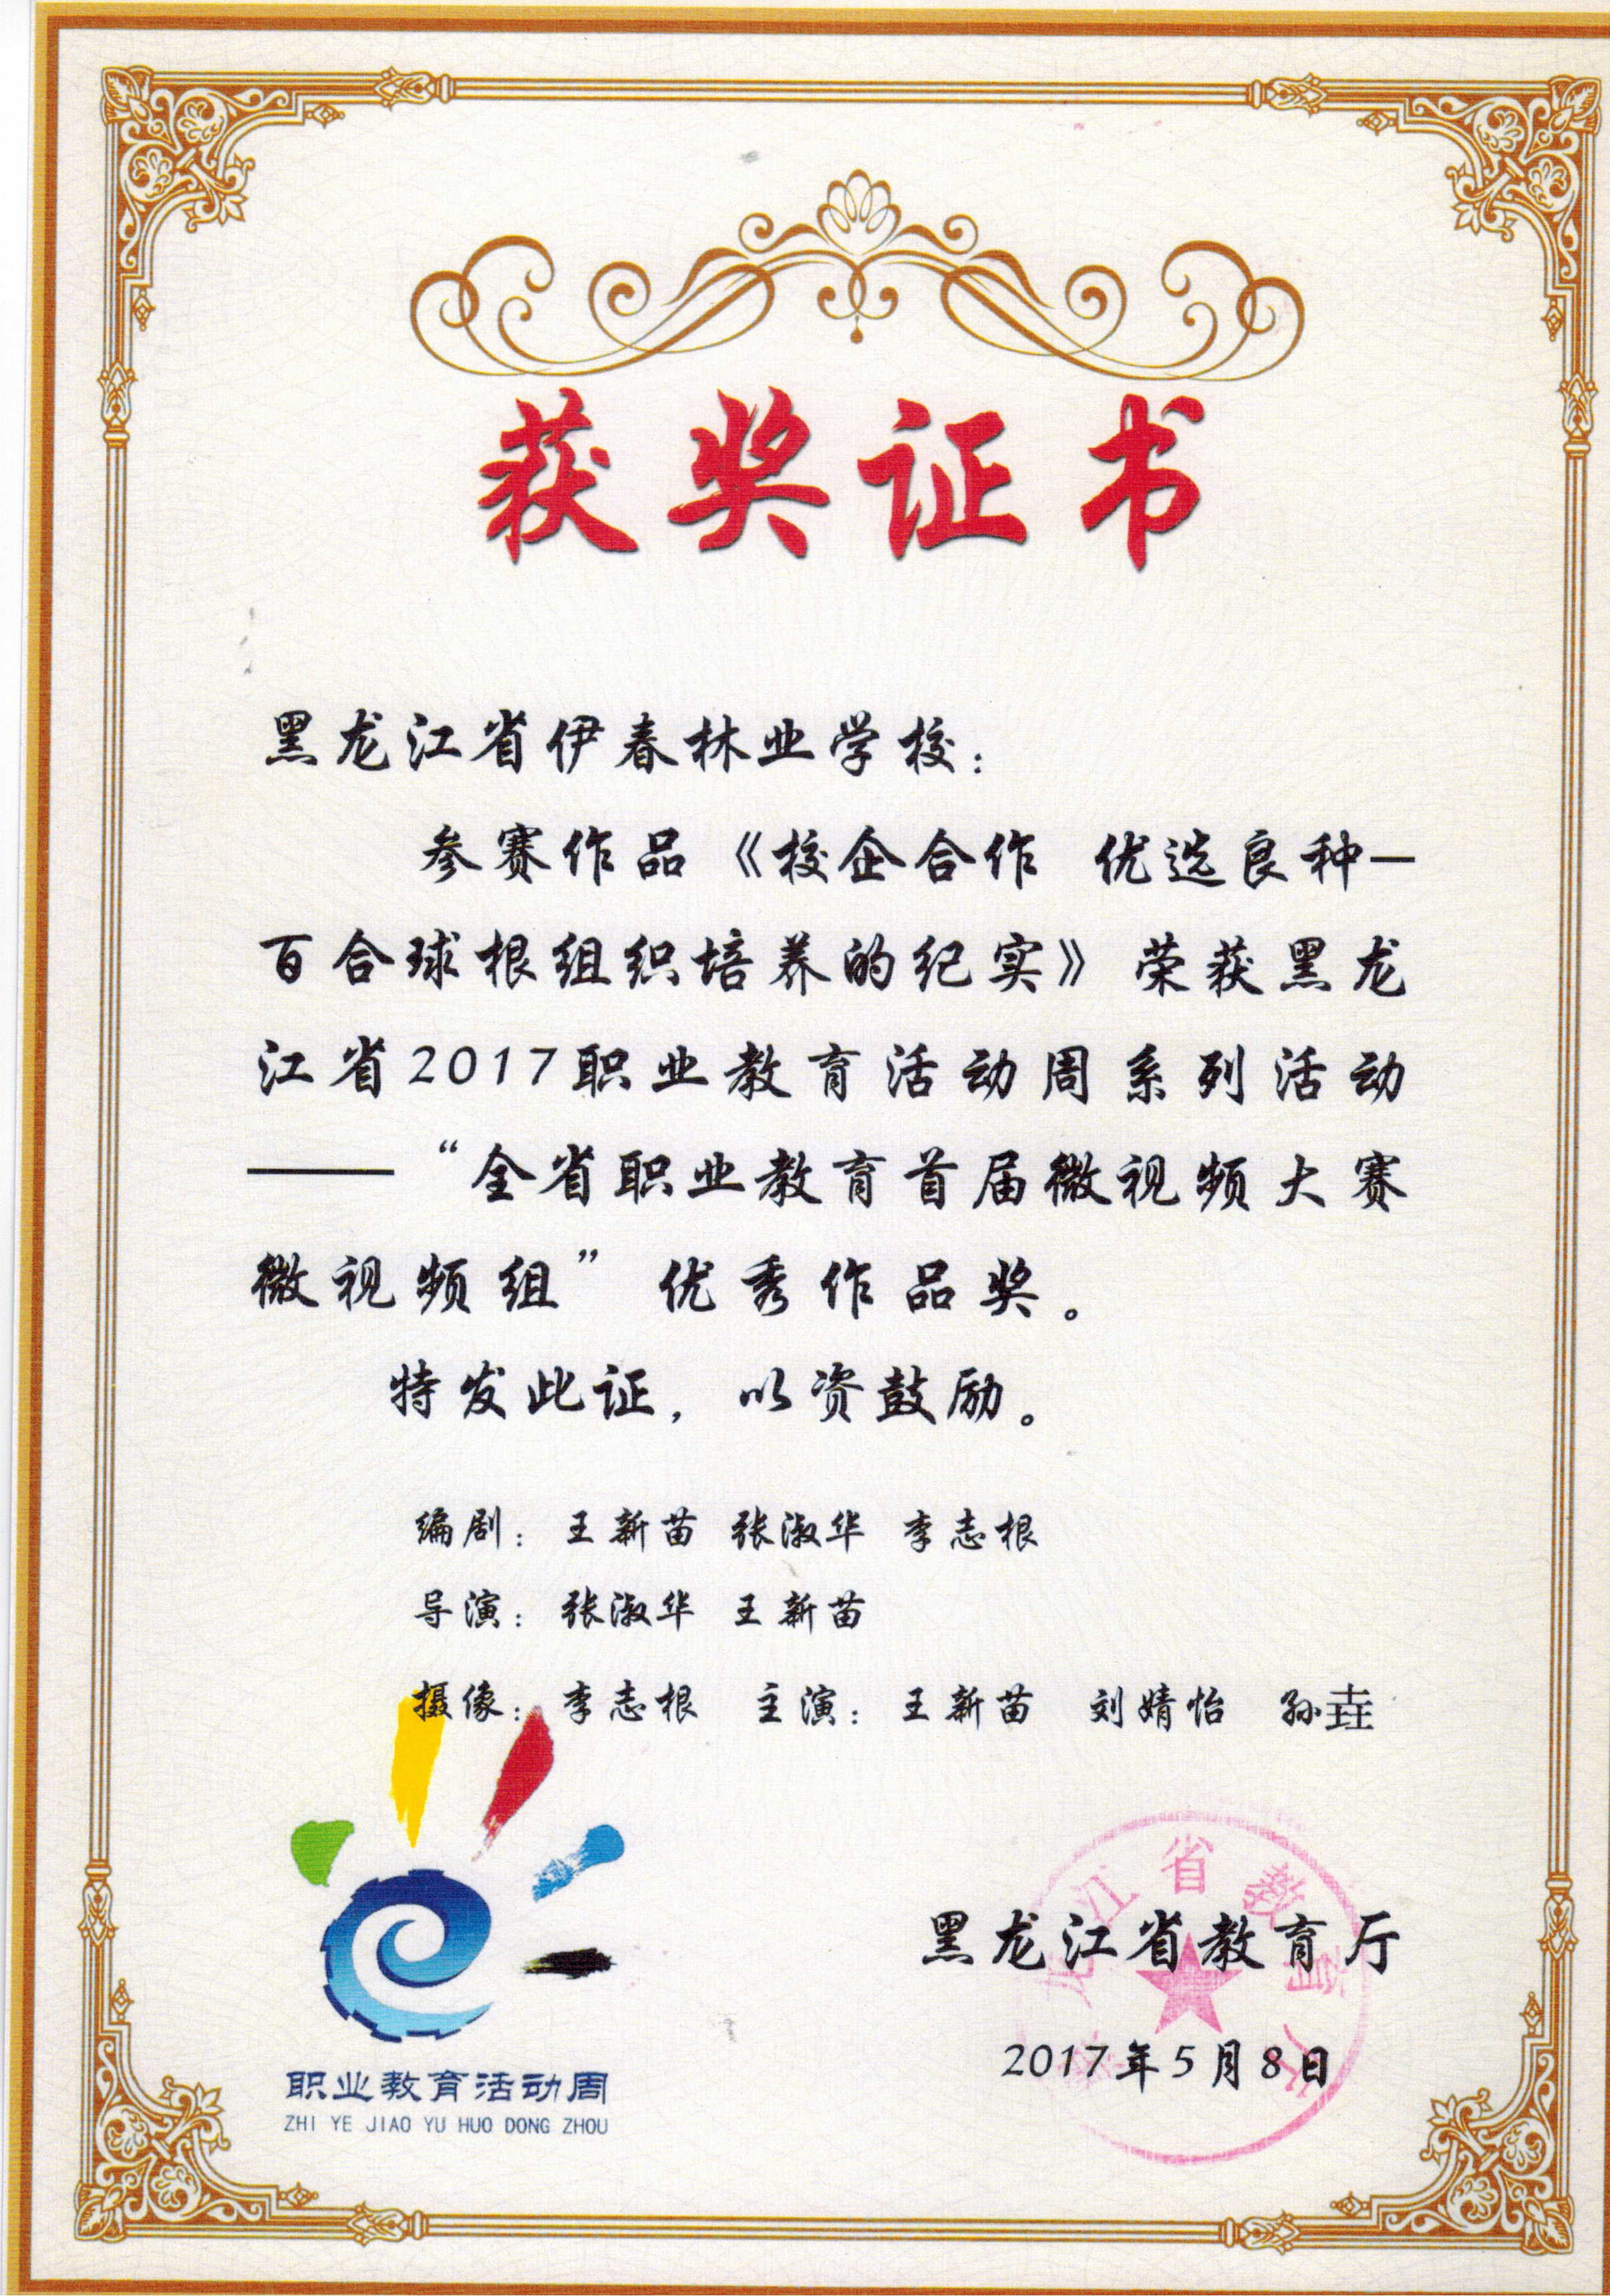 获奖证书
黑龙江省伊春林业学校：
参赛作品《校企合作 优选良种—
百合球根组织培养的纪实》荣获黑龙
江省2017职业教育活动周系列活动
——“全省职业教育首届微视频大赛
微视频组”优秀作品奖。
特发此证，以资鼓励。
编剧：王新苗 张淑华 李志根
导演：张淑华 王新苗
摄像：李志根 主演：王新苗 刘婧怡 孙垚
黑龙江省教育厅
2017年5月8日
职业教育活动周
ZHI YE JIAO YU HUO DONG ZHOU